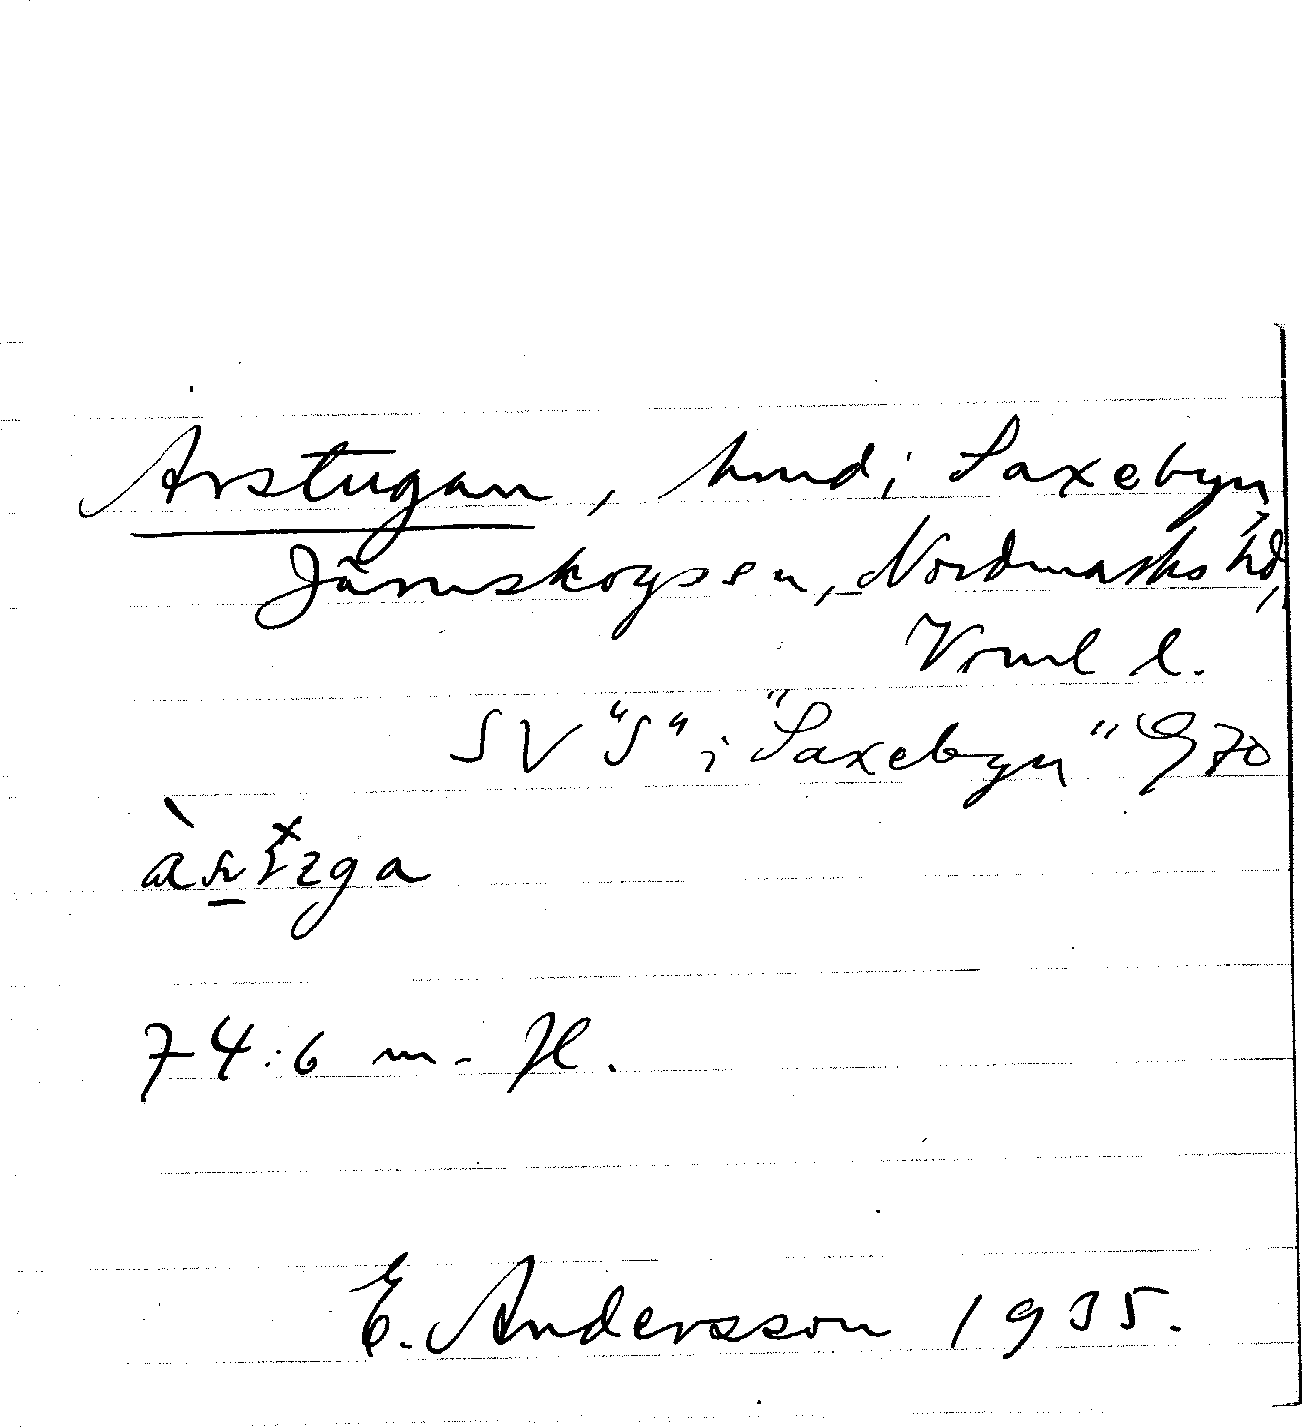 Arstugan, hmd i Saxebyn,
Järnskogs sn, Nordmarks hd,
Vrml l.
SV "S" i "Saxebyn" G 70
74:6 m. Hl.
E. Andersson 1935.